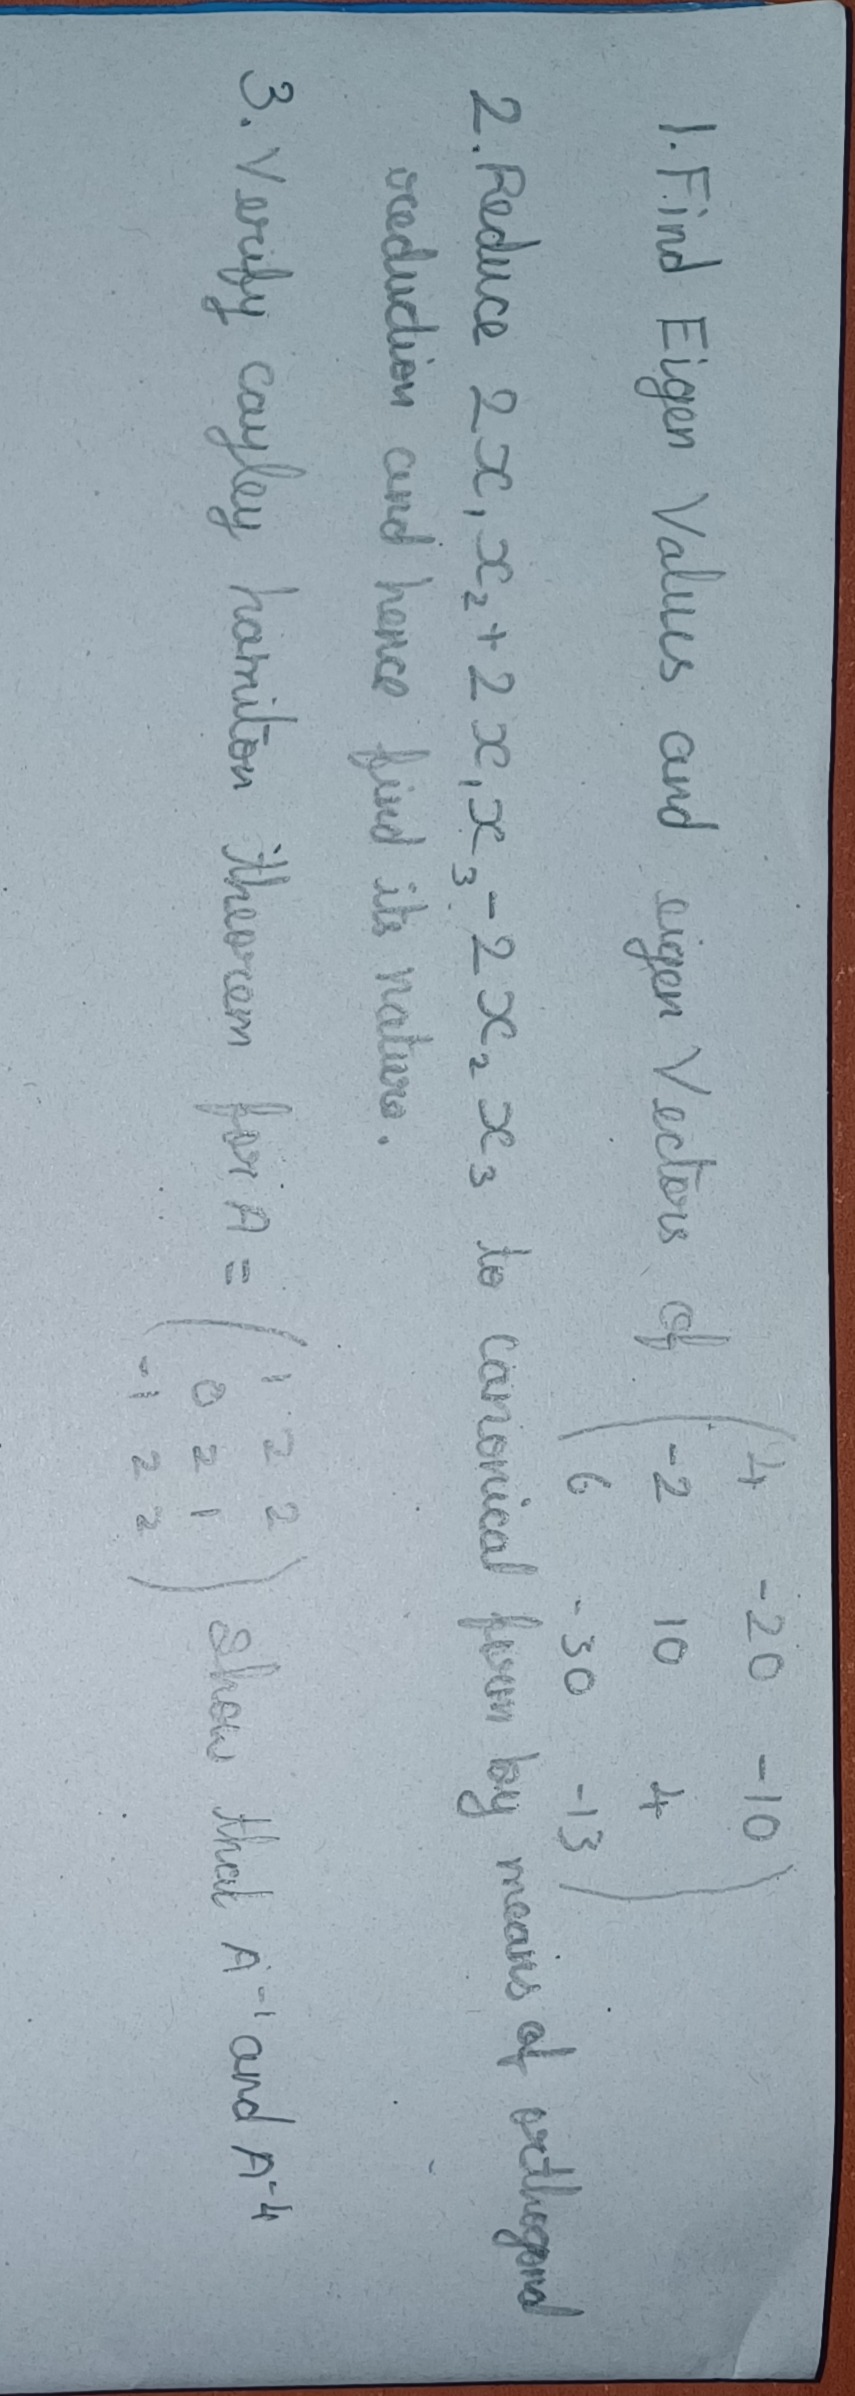 1. Find Eigen Values and eigen Vectors of ( 4 -20 -10
-2 10 4
6 -30 -13 )
2. Reduce 2x₁x₂ + 2x₁x₃ - 2x₂x₃ to canonical form by means of orthogonal
reduction and hence find its nature.
3. Verify cayley hamilton theorem for A = ( 1 2 2
0 2 1
-1 2 2 ) Show that A⁻¹ and A⁻⁴